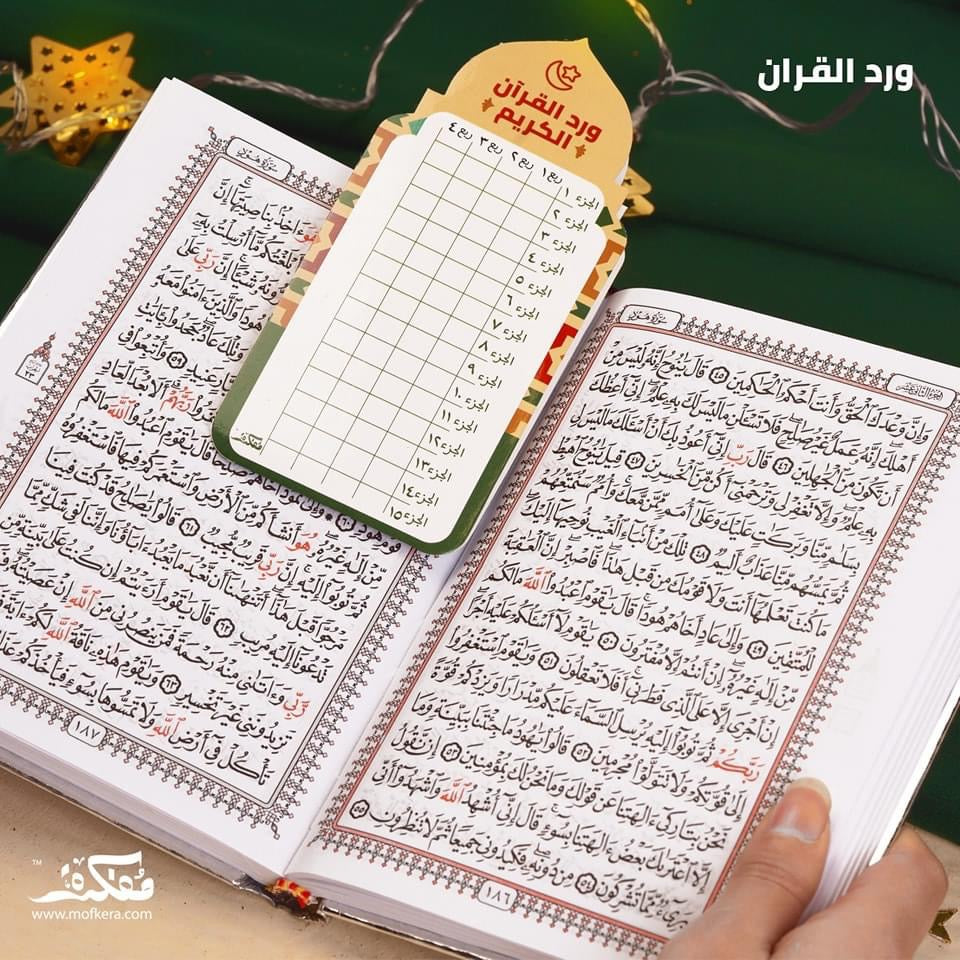 ورد القران
ورد القرآن
الكريم
ربع١ ربع٢ ربع٣ ربع٤
الجزء ١
الجزء ٢
الجزء ٣
الجزء ٤
الجزء ٥
الجزء ٦
الجزء ٧
الجزء ٨
الجزء ٩
الجزء ١٠
الجزء ١١
الجزء ١٢
الجزء ١٣
الجزء ١٤
الجزء ١٥
مفكرة
الجزء الثاني عشر
سورة هود
وَإِنَّ وَعْدَكَ ٱلْحَقُّ وَأَنتَ أَحْكَمُ ٱلْحَٰكِمِينَ ٤٥ قَالَ يَٰنُوحُ إِنَّهُۥ لَيْسَ مِنْ
أَهْلِكَ إِنَّهُۥ عَمَلٌ غَيْرُ صَٰلِحٍ فَلَا تَسْـَٔلْنِ مَا لَيْسَ لَكَ بِهِۦ عِلْمٌ إِنِّىٓ أَعِظُكَ
أَن تَكُونَ مِنَ ٱلْجَٰهِلِينَ ٤٦ قَالَ رَبِّ إِنِّىٓ أَعُوذُ بِكَ أَنْ أَسْـَٔلَكَ مَا لَيْسَ لِى
بِهِۦ عِلْمٌ وَإِلَّا تَغْفِرْ لِى وَتَرْحَمْنِىٓ أَكُن مِّنَ ٱلْخَٰسِرِينَ ٤٧ قِيلَ يَٰنُوحُ ٱهْبِطْ
بِسَلَٰمٍ مِّنَّا وَبَرَكَٰتٍ عَلَيْكَ وَعَلَىٰٓ أُمَمٍ مِّمَّن مَّعَكَ وَأُمَمٌ سَنُمَتِّعُهُمْ
ثُمَّ يَمَسُّهُم مِّنَّا عَذَابٌ أَلِيمٌ ٤٨ تِلْكَ مِنْ أَنۢبَآءِ ٱلْغَيْبِ نُوحِيهَآ إِلَيْكَ
مَا كُنتَ تَعْلَمُهَآ أَنتَ وَلَا قَوْمُكَ مِن قَبْلِ هَٰذَا فَٱصْبِرْ إِنَّ ٱلْعَٰقِبَةَ
لِلْمُتَّقِينَ ٤٩ وَإِلَىٰ عَادٍ أَخَاهُمْ هُودًا قَالَ يَٰقَوْمِ ٱعْبُدُوا۟ ٱللَّهَ مَا لَكُم
مِّنْ إِلَٰهٍ غَيْرُهُۥٓ إِنْ أَنتُمْ إِلَّا مُفْتَرُونَ ٥٠ يَٰقَوْمِ لَآ أَسْـَٔلُكُمْ عَلَيْهِ أَجْرًا
إِنْ أَجْرِىَ إِلَّا عَلَى ٱلَّذِى فَطَرَنِىٓ أَفَلَا تَعْقِلُونَ ٥١ وَيَٰقَوْمِ ٱسْتَغْفِرُوا۟
رَبَّكُمْ ثُمَّ تُوبُوٓا۟ إِلَيْهِ يُرْسِلِ ٱلسَّمَآءَ عَلَيْكُم مِّدْرَارًا وَيَزِدْكُمْ قُوَّةً
إِلَىٰ قُوَّتِكُمْ وَلَا تَتَوَلَّوْا۟ مُجْرِمِينَ ٥٢ قَالُوا۟ يَٰهُودُ مَا جِئْتَنَا بِبَيِّنَةٍ وَمَا
نَحْنُ بِتَارِكِىٓ ءَالِهَتِنَا عَن قَوْلِكَ وَمَا نَحْنُ لَكَ بِمُؤْمِنِينَ ٥٣ إِن نَّقُولُ
إِلَّا ٱعْتَرَىٰكَ بَعْضُ ءَالِهَتِنَا بِسُوٓءٍ قَالَ إِنِّىٓ أُشْهِدُ ٱللَّهَ وَٱشْهَدُوٓا۟ أَنِّى
بَرِىٓءٌ مِّمَّا تُشْرِكُونَ ٥٤ مِن دُونِهِۦ فَكِيدُونِى جَمِيعًا ثُمَّ لَا تُنظِرُونِ ٥٥
١٨٦
سورة هود
هُوَ ءَاخِذٌۢ بِنَاصِيَتِهَآ إِنَّ
أَبْلَغْتُكُم مَّآ أُرْسِلْتُ بِهِۦٓ
إِنَّ رَبِّى عَلَىٰ
هُودًا وَٱلَّذِينَ ءَامَنُوا۟ مَعَهُۥ
وَتِلْكَ عَادٌ جَحَدُوا۟ بِـَٔايَٰتِ
عَنِيدٍ ٥٩ وَأُتْبِعُوا۟ فِى
رَبَّهُمْ أَلَا بُعْدًا لِّعَادٍ
قَالَ يَٰقَوْمِ ٱعْبُدُوا۟ ٱللَّهَ مَا لَكُم
مِّنْ إِلَٰهٍ غَيْرُهُۥ هُوَ أَنشَأَكُم مِّنَ ٱلْأَرْضِ وَٱسْتَعْمَرَكُمْ فِيهَا فَٱسْتَغْفِرُوهُ
ثُمَّ تُوبُوٓا۟ إِلَيْهِ إِنَّ رَبِّى قَرِيبٌ مُّجِيبٌ ٦١ قَالُوا۟ يَٰصَٰلِحُ قَدْ كُنتَ فِينَا
مَرْجُوًّا قَبْلَ هَٰذَآ أَتَنْهَىٰنَآ أَن نَّعْبُدَ مَا يَعْبُدُ ءَابَآؤُنَا وَإِنَّنَا لَفِى شَكٍّ مِّمَّا
تَدْعُونَآ إِلَيْهِ مُرِيبٍ ٦٢ قَالَ يَٰقَوْمِ أَرَءَيْتُمْ إِن كُنتُ عَلَىٰ بَيِّنَةٍ مِّن
رَّبِّى وَءَاتَىٰنِى مِنْهُ رَحْمَةً فَمَن يَنصُرُنِى مِنَ ٱللَّهِ إِنْ عَصَيْتُهُۥ
تَزِيدُونَنِى غَيْرَ تَخْسِيرٍ ٦٣ وَيَٰقَوْمِ هَٰذِهِۦ نَاقَةُ ٱللَّهِ لَكُمْ ءَايَةً
تَأْكُلْ فِىٓ أَرْضِ ٱللَّهِ وَلَا تَمَسُّوهَا بِسُوٓءٍ فَيَأْخُذَكُمْ
١٨٧
مفكرة TM
www.mofkera.com